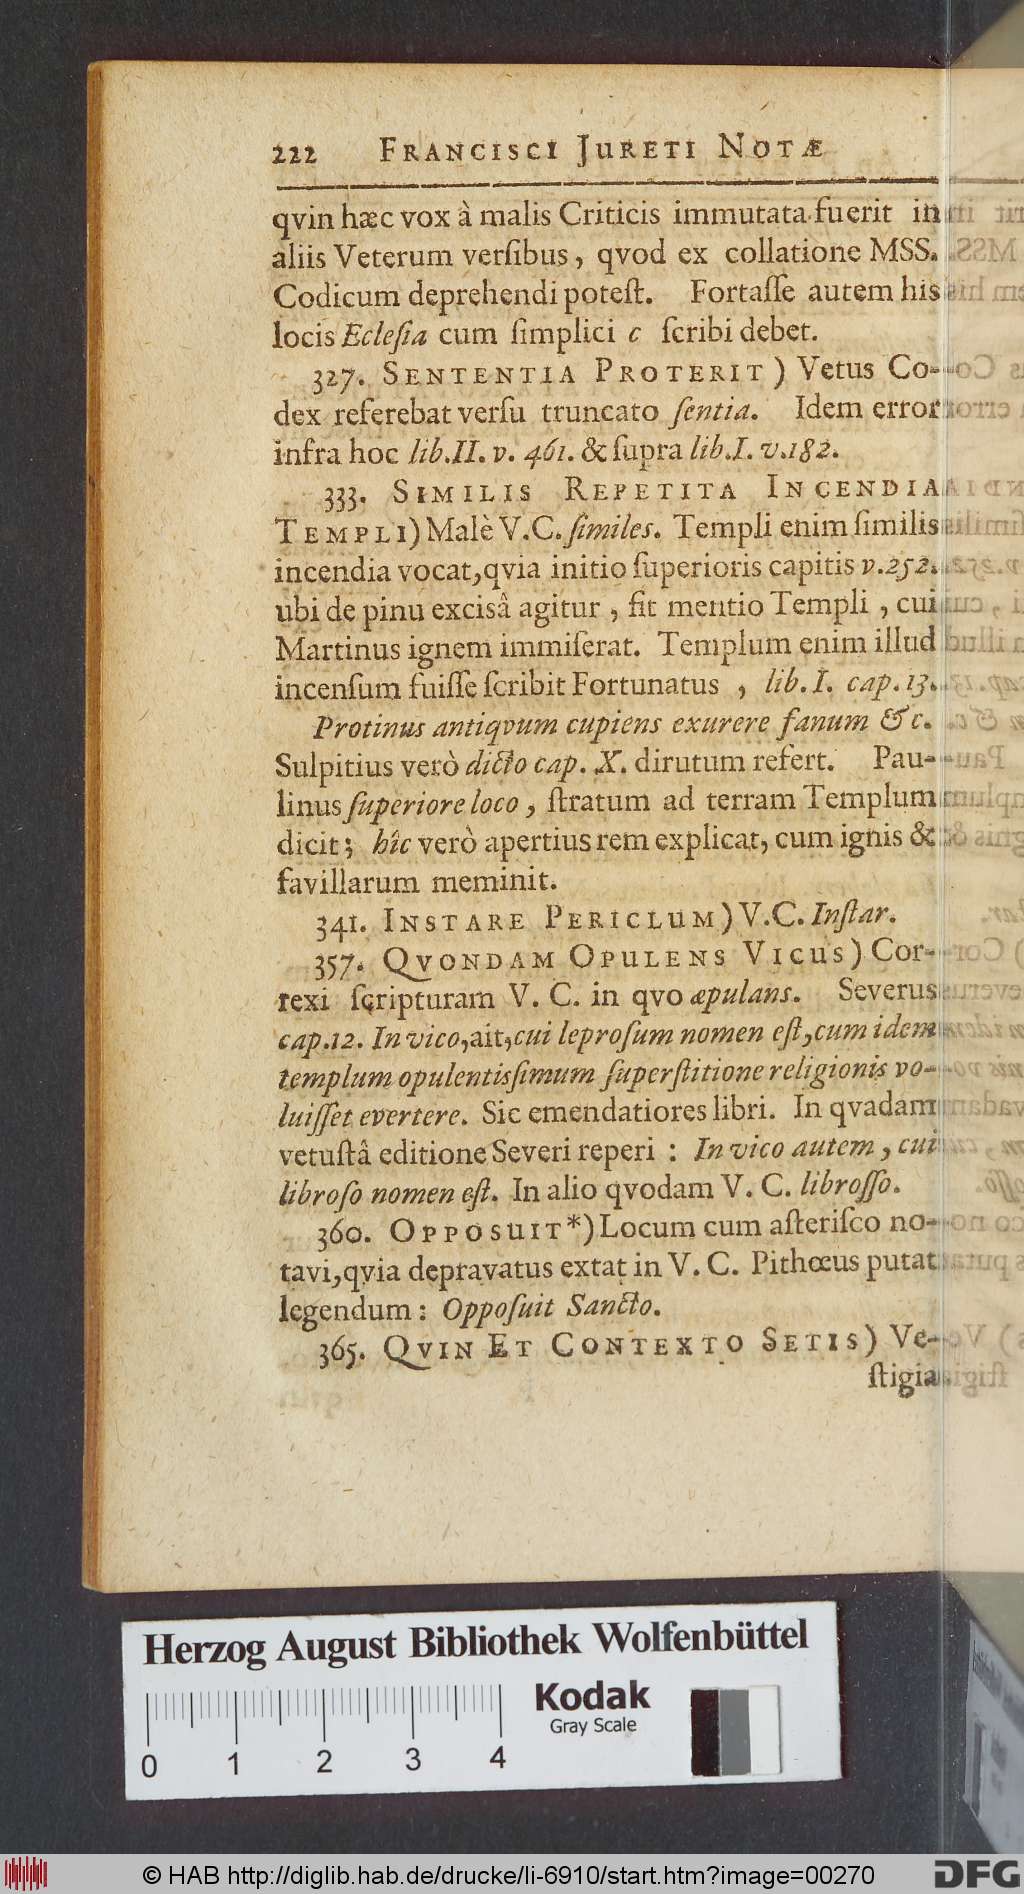 222 FRANCISCI JURETI NOTÆ
qvin hæc vox à malis Criticis immutata fuerit in
aliis Veterum verſibus, qvod ex collatione MSS.
Codicum deprehendi poteſt. Fortaſſe autem his
locis Ecleſia cum ſimplici c ſcribi debet.
327. SENTENTIA PROTERIT) Vetus Co-
dex referebat verſu truncato ſentia. Idem error
infra hoc lib.II. v. 461. & ſupra lib.I. v.182.
333. SIMILIS REPETITA INCENDIA
TEMPLI) Malè V.C. ſimiles. Templi enim ſimilis
incendia vocat, qvia initio ſuperioris capitis v.252.
ubi de pinu excisâ agitur, fit mentio Templi, cui
Martinus ignem immiſerat. Templum enim illud
incenſum fuiſſe ſcribit Fortunatus, lib. I. cap. 13.
Protinus antiqvum cupiens exurere fanum &c.
Sulpitius verò dicto cap. X. dirutum refert. Pau-
linus ſuperiore loco, ſtratum ad terram Templum
dicit; hîc verò apertius rem explicat, cum ignis &
favillarum meminit.
341. INSTARE PERICLUM) V.C. Inſtar.
357. QVONDAM OPULENS VICUS) Cor-
rexi ſcripturam V. C. in qvo æpulans. Severus
cap.12. In vico, ait, cui leproſum nomen eſt, cum idem
templum opulentisſimum ſuperſtitione religionis vo-
luiſſet evertere. Sic emendatiores libri. In qvadam
vetuſtâ editione Severi reperi: In vico autem, cui
libroſo nomen eſt. In alio qvodam V. C. libroſſo.
360. OPPOSUIT*) Locum cum aſteriſco no-
tavi, qvia depravatus extat in V. C. Pithœus putat
legendum: Oppoſuit Sancto.
365. QVIN ET CONTEXTO SETIS) Ve-
ſtigia
Herzog August Bibliothek Wolfenbüttel
Kodak
Gray Scale
0 1 2 3 4
© HAB http://diglib.hab.de/drucke/li-6910/start.htm?image=00270
DFG